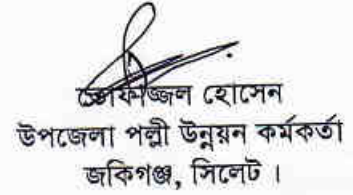 তোফাজ্জল হোসেন
উপজেলা পল্লী উন্নয়ন কর্মকর্তা
জকিগঞ্জ, সিলেট ।